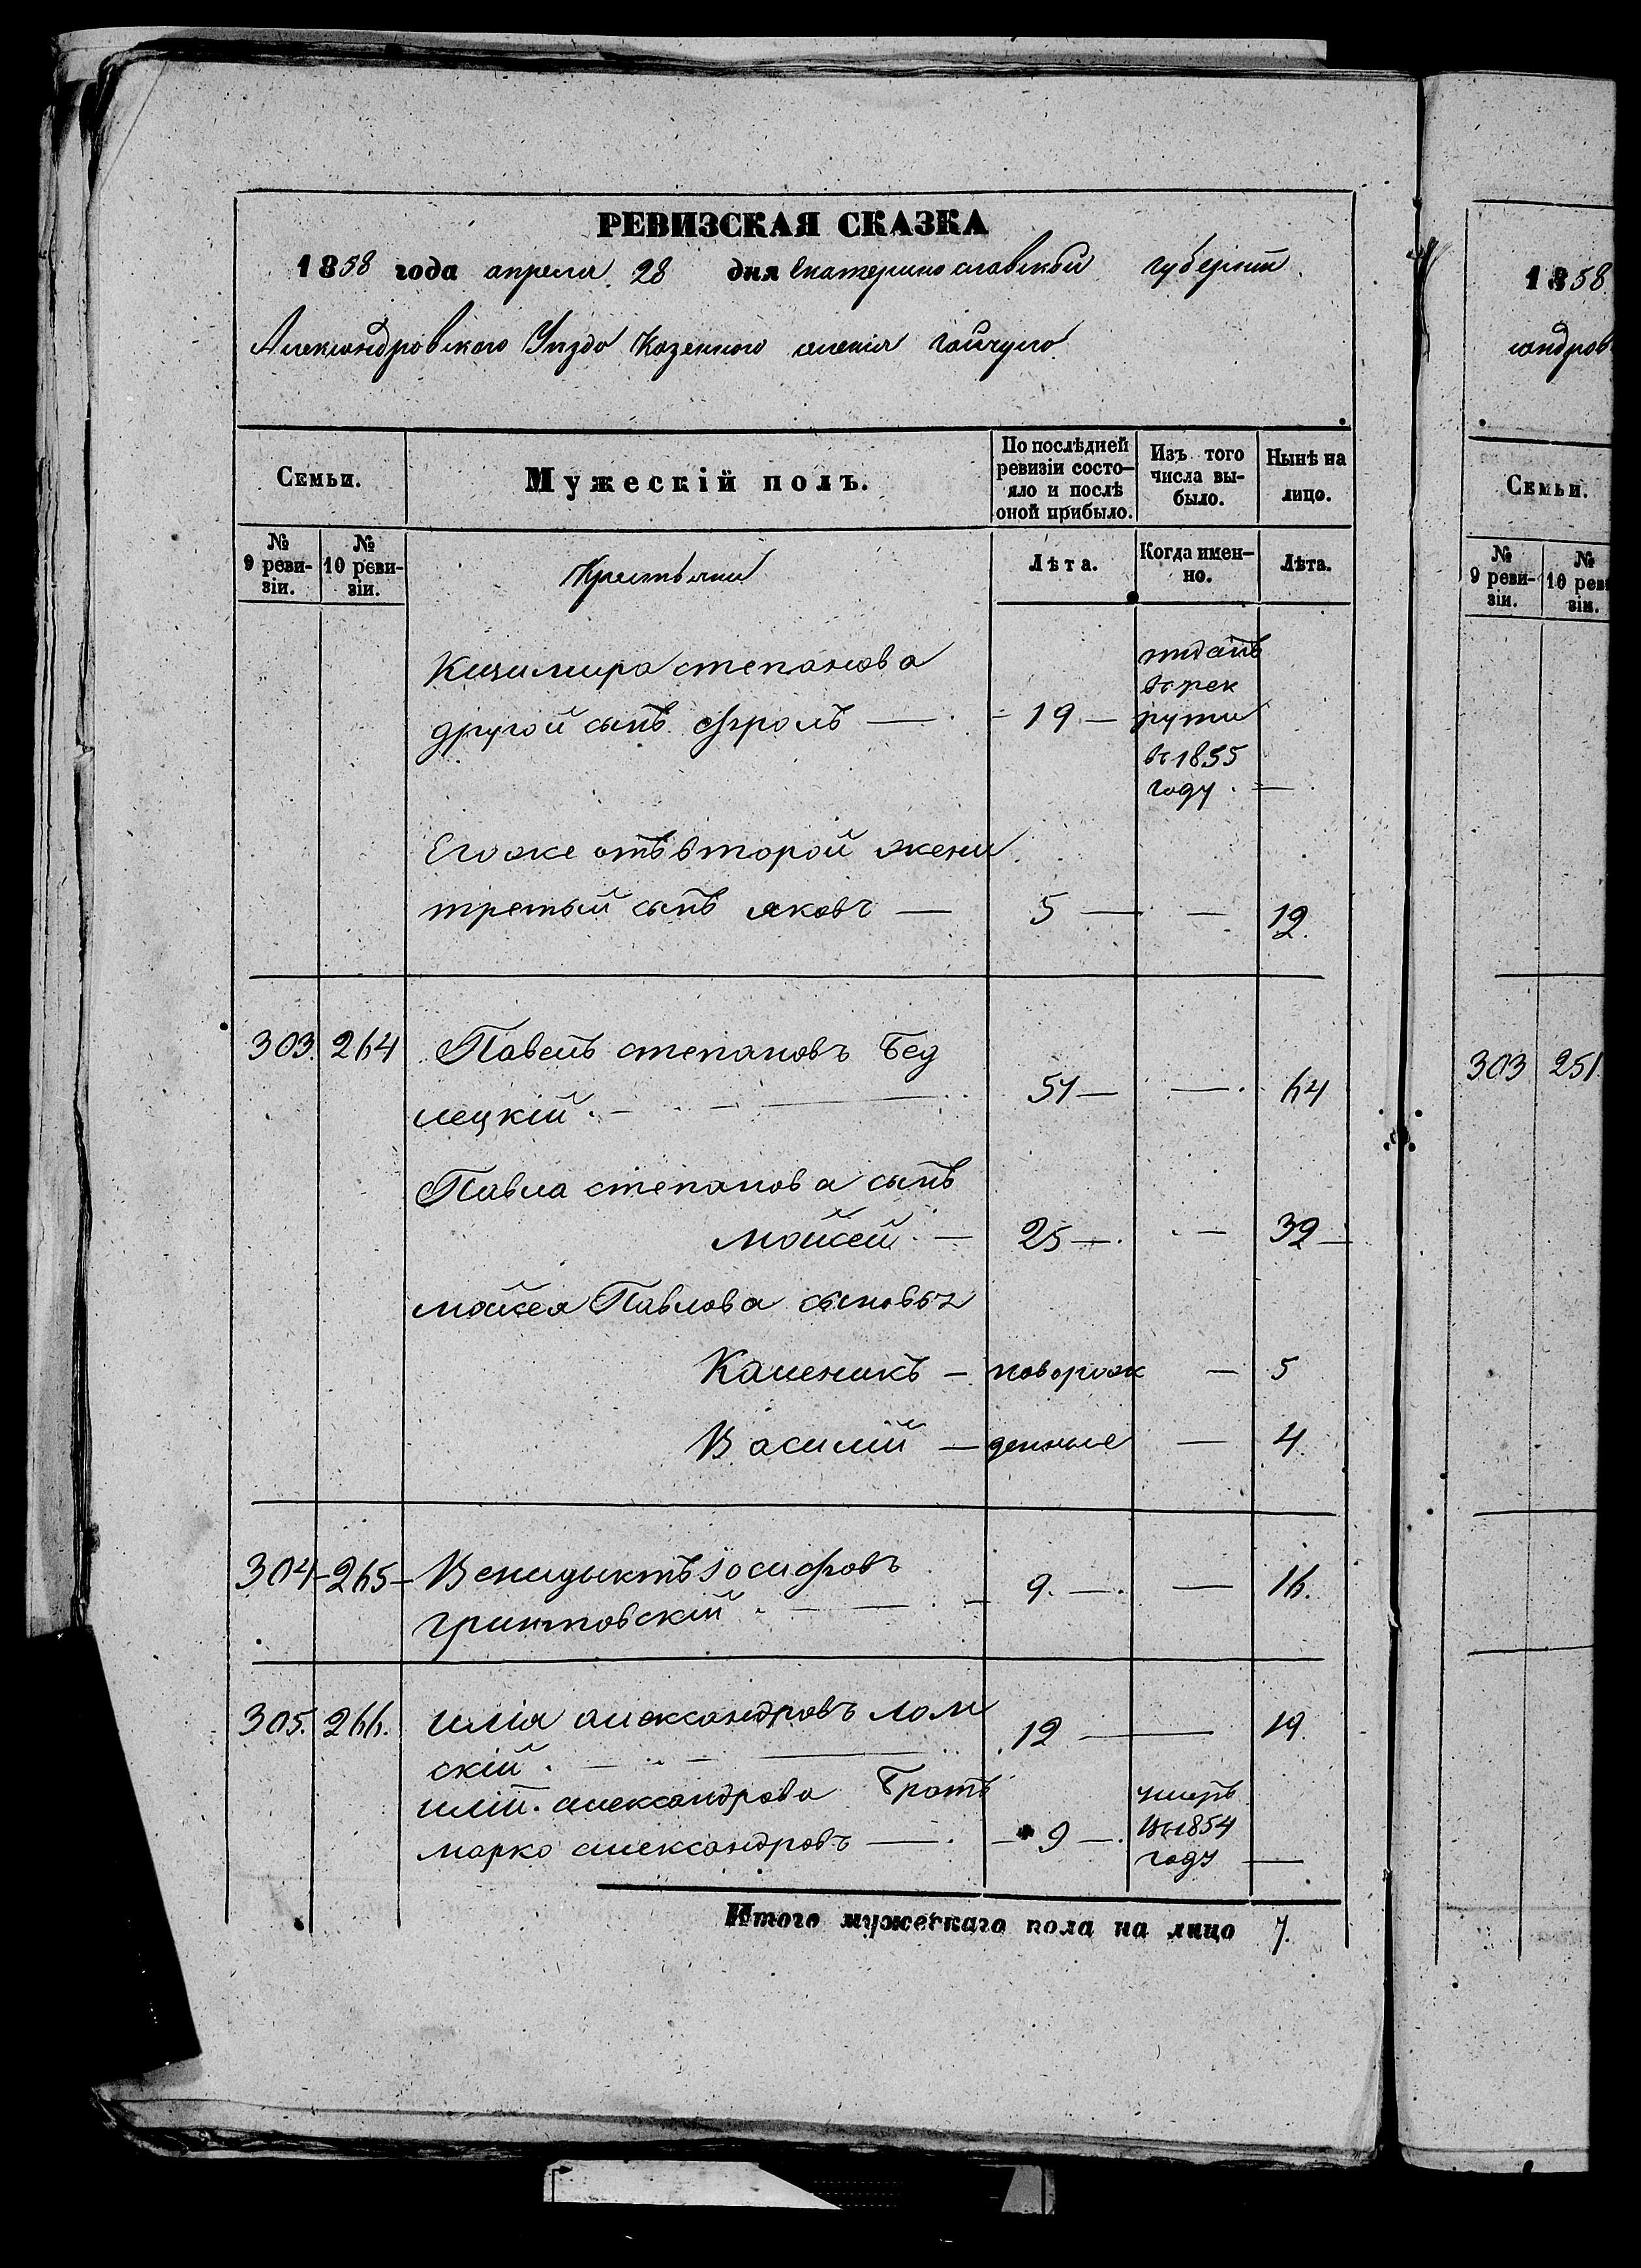 РЕВИЗСКАЯ СКАЗКА
1858 года апреля 28 дня Екатеринославской губернии.
Александровского Уезда Казенного селения Гайчула
Семьи.
Мужескій полъ.
По послѣдней ревизіи состо-
яло и послѣ
оной прибыло.
Изъ того
числа вы-
было.
Нынѣ на
лицо.
№
9 реви-
зіи.
№
10 реви-
зіи.
Крестьяни
Лѣта.
Когда имен-
но.
Лѣта.
Казимира степанова
другой сынъ фролъ — 19 —
отданъ
въ рек
рути
въ 1855
году. —
Егоже отъ второй жени
третый сынъ яковъ — 5 — — 12.
303. 264 Павелъ степановъ Бед
лецкій. — 57 — — 64
Павла степанова сынъ
мойсей. — 25 — — 32 —
мойсея Павлова сыновья
Каленикъ — новорож — 5
Василий — денные — 4
304 — 265 — Венидыктъ Іосифовъ
Гринтовскій. — 9. — — 16.
305. 266. илія александровъ лом
скій. — 12 — 19.
иліи. александрова Братъ
марко александровъ — 9 —
умеръ
въ 1854
году —
Итого мужескаго пола на лицо 7.
1858
сандров
Семьи.
№
9 реви-
зіи.
№
10 реви
зіи.
303 251.